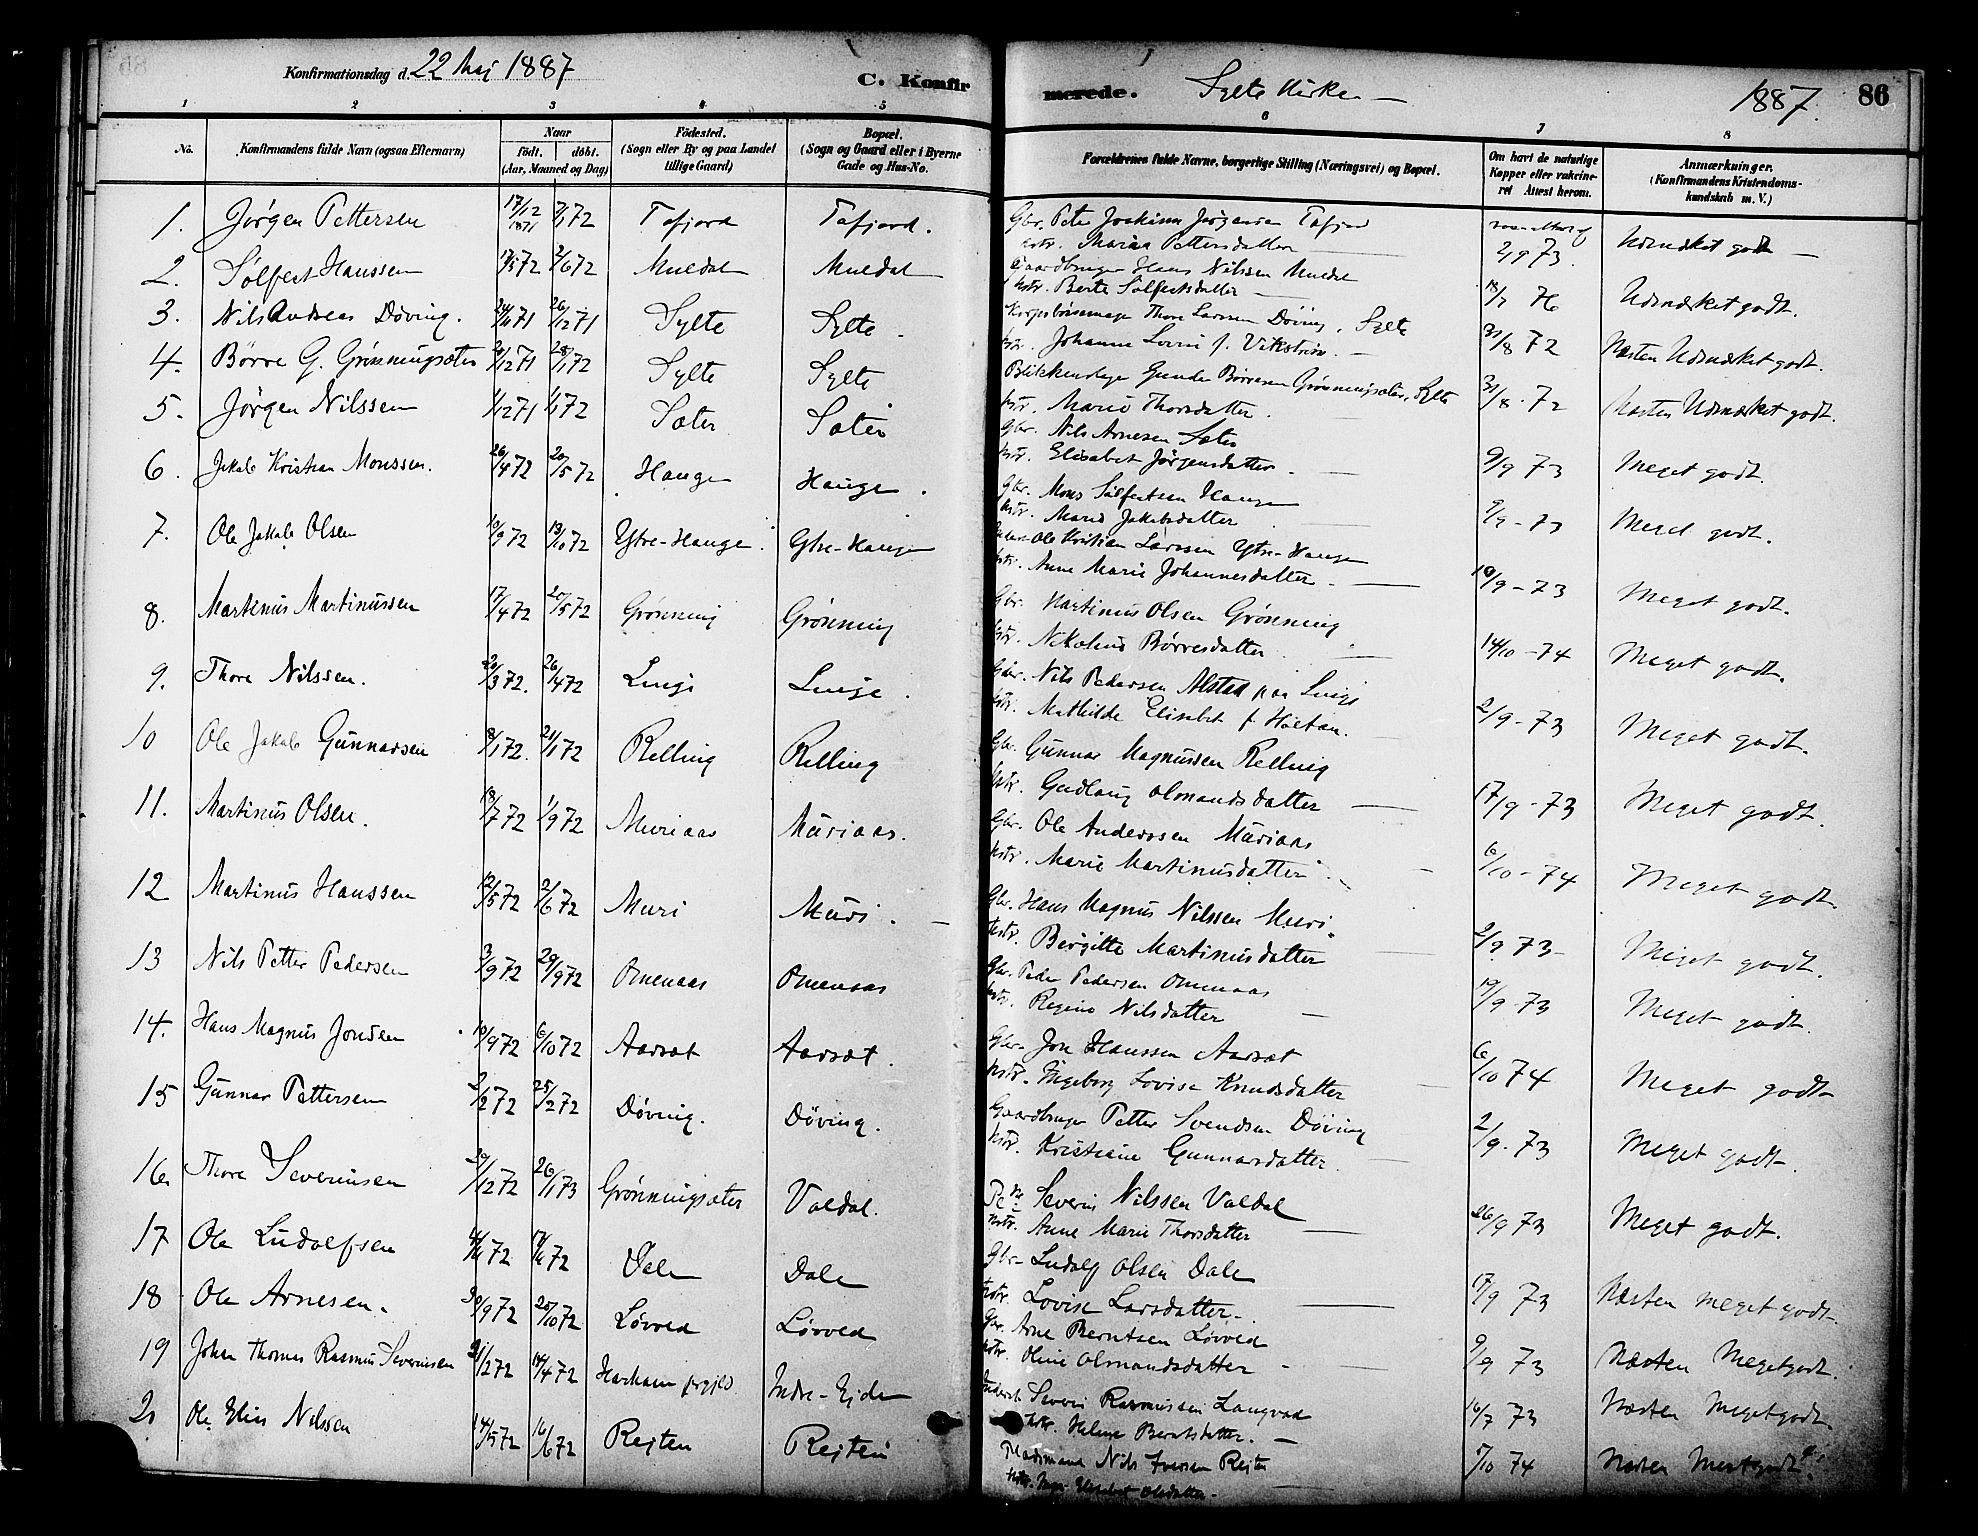 Konfirmationsdag d. 22 Maj 1887
C. Konfir
merede.
Sylte Kirke —
1887.
86
1 2 3 4 5 6 7 8
No.
Konfirmandens fulde Navn (ogsaa Efternavn)
Naar
født. døbt.
(Aar, Maaned og Dag)
Fødested.
(Sogn eller By og paa Landet
tillige Gaard)
Bopæl.
(Sogn og Gaard eller i Byerne
Gade og Hus-No.
Forældrenes fulde Navne, borgerlige Stilling (Næringsvei) og Bopæl.
Om havt de naturlige
Kopper eller vakcine-
ret Attest herom.
Anmærkninger.
(Konfirmandens Kristendoms-
kundskab m. V.)
1. Jørgen Pettersen 17/12 1871 7/1 72 Tafjord Tafjord.
Gbr. Peter Joakim Jørgensen Tafjord
Hstr. Maria Pettersdatter
2/9 73. Udmærket godt —
2. Sølfest Hanssen 72 2/6 72 Muldal Muldal
Gaardbruger Hans Nilssen Muldal
Hstr. Berte Sølfestsdatter —
76 Udmærket godt.
3. Nils Andreas Døving. 71 26/12 71 Sylte Sylte.
Thore Larssen Døving, Sylte
Hstr. Johanne f. —
31/8 72 Næsten Udmærket godt.
4. Børre G. Grønningsæter 71 28/1 72 Sylte Sylte
Børresen Grønningsæter, Sylte
Hstr. Marie Thorsdatter.
31/8 - 72 Næsten Udmærket godt.
5. Jørgen Nilssen 1/12 71 1/1 72 Sæter Sæter
Gbr. Nils Arnesen Sæter
Hstr. Elisabet Jørgensdatter. —
9/9 73 Meget godt.
6. Jakob Kristian Monssen. 26/4 72 20/5 72 Hauge Hauge.
Gbr. Mons Sølfestsen Hauge
Hstr. Marie Jakobsdatter
9/9 - 73 Meget godt.
7. Ole Jakob Olsen 10/9 72 13/10 72 Ytre-Hauge. Ytre-Hauge
Ole Kristian Larssen Ytre-Hauge
Hstr. Anne Marie Johannesdatter. —
19/9 - 73 Meget godt.
8. Martinus Martinussen 17/4 72 20/5 72 Grønning Grønning
Gbr. Martinus Olsen Grønning
Hstr. Nikoline Børresdatter. —
14/10 - 74 Meget godt.
9. Thore Nilssen. 20/3 72. 26/4 72 Linge Linge.
Gbr. Nils Pedersen Alstad paa Linge
Hstr. Mathilde Elisabet f. Høltan.
2/9 - 73 Meget godt.
10 Ole Jakob Gunnarsen 8/1 72. 21/1 72 Relling Relling
Gbr. Gunnar Magnussen Relling
Hstr. Gudlaug Olmandsdatter —
17/9 - 73 Meget godt.
11. Martinus Olsen. 18/7 72 1/9 72 Muriaas Muriaas.
Gbr. Ole Anderssen Muriaas
Hstr. Marie Martinusdatter.
6/10 - 74 Meget godt.
12 Martinus Hanssen 12/5 72 2/6 72 Muri Muri. —
Gbr. Hans Magnus Nilssen Muri.
Hstr. Bergitte Martinusdatter
2/9 73 - Meget godt.
13 Nils Petter Pedersen 3/9 72 29/9 72 Omenaas Omenaas
Gbr. Peder Pedersen Omenaas
Hstr. Regine Nilsdatter —
19/9 - 73 Meget godt.
14. Hans Magnus Jonsen 10/9 72 6/10 72 Aarsæt Aarsæt.
Gbr. Jon Hanssen Aarsæt
Hstr. Ingeborg Lovise Knudsdatter —
6/10 74 Meget godt
15 Gunnar Pettersen 2/2 72 25/2 72 Døving. Døving.
Gaardbruger Petter Svendsen Døving
Hstr. Kristiane Gunnarsdatter. —
2/9 - 73 Meget godt.
16. Thore Severinsen 29/12 72 26/1 73 Grønningsæter Valdal.
Severin Nilssen Valdal
Hstr. Anne Marie Thorsdatter —
26/9 73 Meget godt.
17 Ole Ludolfsen 72 72 Dale Dale
Gbr. Ludolf Olsen Dale
Hstr. Lovise Larsdatter. —
17/9 73 Næsten meget godt
18 Ole Arnesen. 30/9 72 20/10 72 Løvoed Løvoed
Gbr. Arne Berntsen Løvoed
Hstr. Oline Olmandsdatter —
9/9 73 Næsten Meget godt.
19 Johan Thomas Rasmus Severinsen 21/2 72 14/4 72 Harham prgjld. Indre-Ejde
Severin Rasmussen Langvad
Hstr. Helene Berntsdatter. —
16/7 73 Næsten Meget godt.
20 Ole Elias Nilssen 14/5 72 16/6 72 Rejten Rejten
Pladsmand Nils Iversen Rejten
Hstr. Elisabet Olsdatter. —
74 Næsten Meget godt.